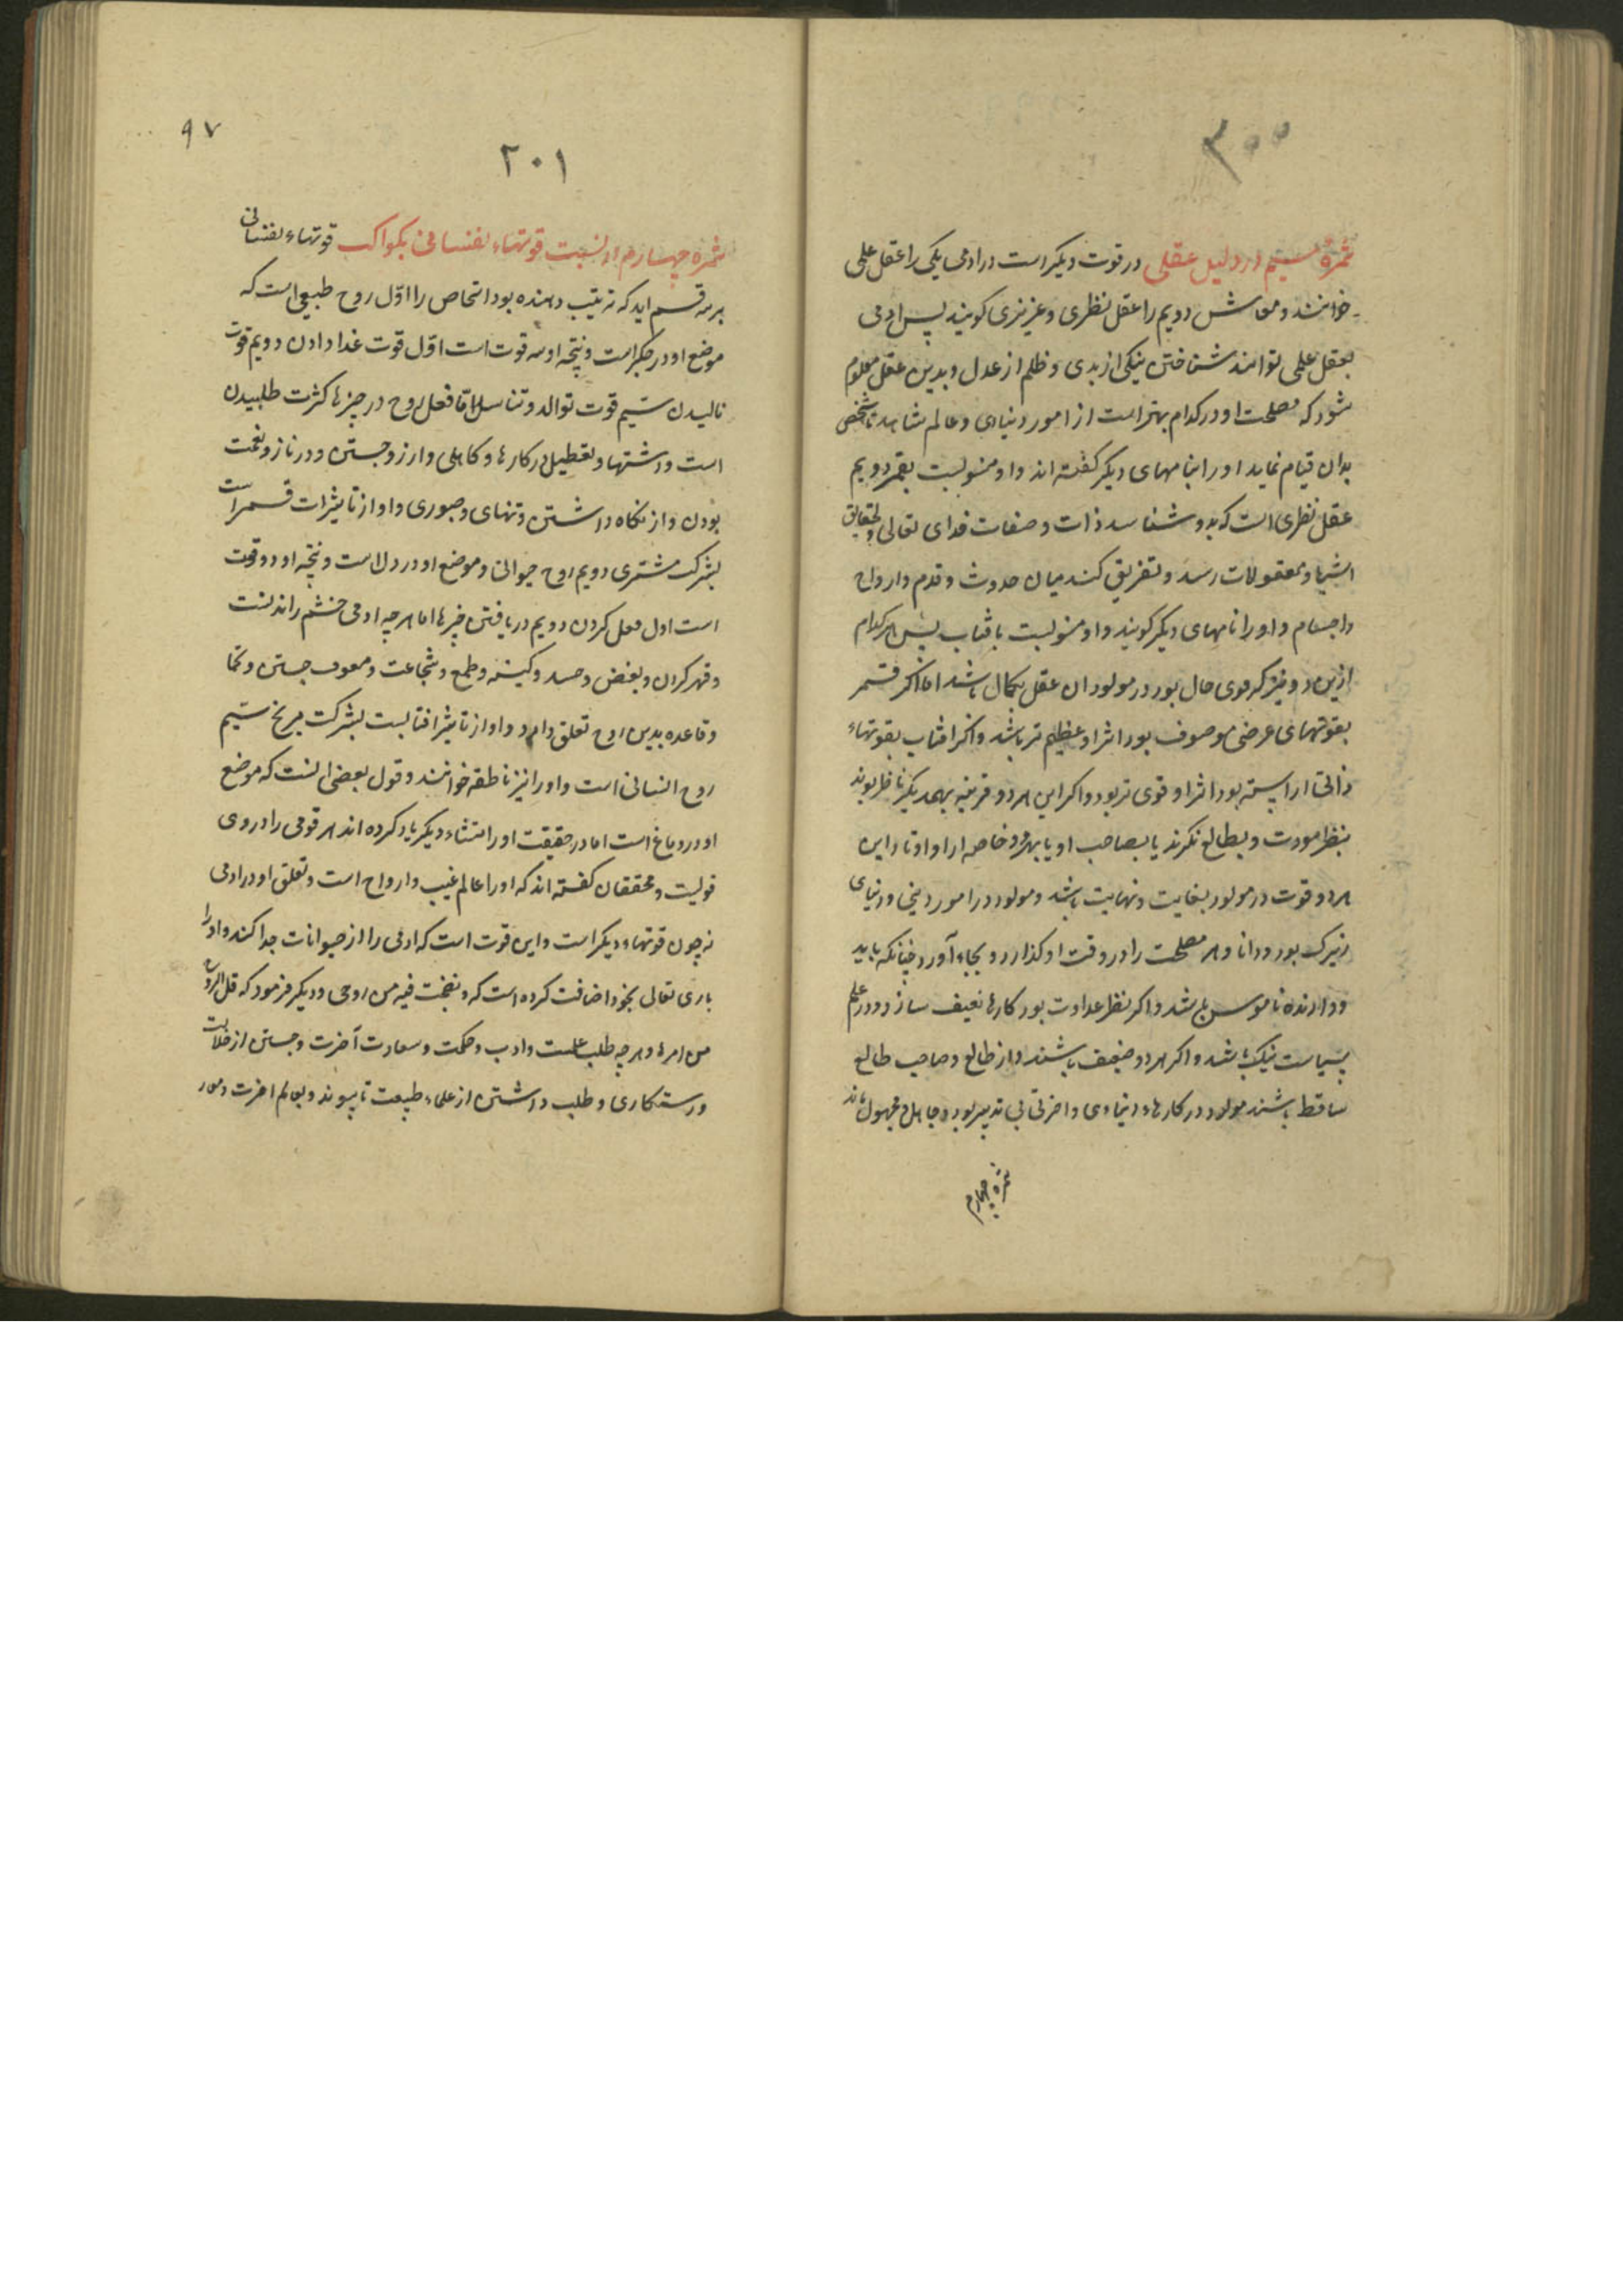 ۳۰۰
ثمرهٔ سیم در دلیل عقلی در قوت دیکر است در ادمی یکی را عقل علمی
خوانند و معاش دویم را عقل نظری و غریزی کویند پس ادمی
بعقل علمی توانند شناختن نیکی از بدی و ظلم از عدل و بدین عقل معلوم
شود که مصلحت او در کدام بهتر است از امور دنیاوی و عالم مشاهد تا شخص
بدان قیام نماید او را بنامهای دیکر کفته اند و او منسوبست بقمر دویم
عقل نظری است که بدو شناسد ذات و صفات خدای تعالی و بحقایق
اشیا و معقولات رسد و تفریق کند میان حدوث و قدم و ارواح
و اجسام و او را نامهای دیکر کویند و او منسوبست بافتاب پس هر کدام
ازین دو نیر که قوی حال بود در مولود ان عقل بکمال باشد اما اکر قمر
بقوتهای عرضی موصوف بود اثر او عظیم تر باشد و اکر افتاب بقوتهاء
ذاتی اراسته بود اثر او قوی تر بود و اکر این هر دو قرینه بهمدیکر ناظر بوند
بنظر مودت و بطالع نکرند یا بصاحب او یا بهر دو خاصه از اوتاد این
هر دو قوت در مولود بغایت و نهایت باشد و مولود در امور دینی و دنیای
زیرک بود و دانا و هر مصلحت را در وقت او کذارد و بجاء آورد چنانکه باید
و دارنده ناموس باشد و اکر نظر عداوت بود کارها نعیف سازد و در علم
سیاست نیک باشد و اکر هر دو ضعیف باشند و از طالع و صاحب طالع
ساقط باشند مولود در کارهاء دنیاوی و اخرتی بی تدبیر بود و جاهل و مجهول ماند
ثمره چهارم
۹۷
۲۰۱
ثمره چهارم در نسبت قوتهاء نفسانی بکواکب قوتهاء نفسانی
بر سه قسم اید که ترتیب دهنده بود اشخاص را اوّل روح طبیعی است که
موضع او در جکر است و نتیجه او سه قوت است اوّل قوت غدا دادن دویم قوت
بالیدن سیم قوت توالد و تناسل امّا فعل روح در چیزها کثرت طلبیدن
است و اشتها و تعطیل در کارها و کاهلی و ارزو جستن و در ناز و نعمت
بودن و از نکاه داشتن و تنهای و صبوری و او از تاثیرات قمر است
بشرکت مشتری دویم روح حیوانی و موضع او در دل است و نتیجه او دو قوت
است اول فعل کردن دویم دریافتن چیزها اما هر چه ادمی خشم راندنست
و قهر کردن و بغض و حسد و کینه و طمع و شجاعت و معروف جستن و
و قاعده بدین روح تعلق دارد و او از تاثیر افتابست بشرکت مریخ سیم
روح انسانی است و او را نیز ناطقه خوانند و قول بعضی انست که موضع
او در دماغ است اما در حقیقت او را منشاء دیکر یاد کرده اند هر قومی را در وی
قولیست و محققان کفته اند که او را عالم غیب و ارواح است و تعلق او در ادمی
نه چون قوتهاء دیکر است و این قوت است که ادمی را از حیوانات جدا کند و او را
باری تعالی بخود اضافت کرده است که و نفخت فیه من روحی و دیکر فرمود که قل الروح
من امر و هر چه طلب علمست و ادب و حکمت و سعادت آخرت و جستن از ضلالت
و رستکاری و طلب داشتن از علماء طبیعت تا پیوند و بعالم اخرت و